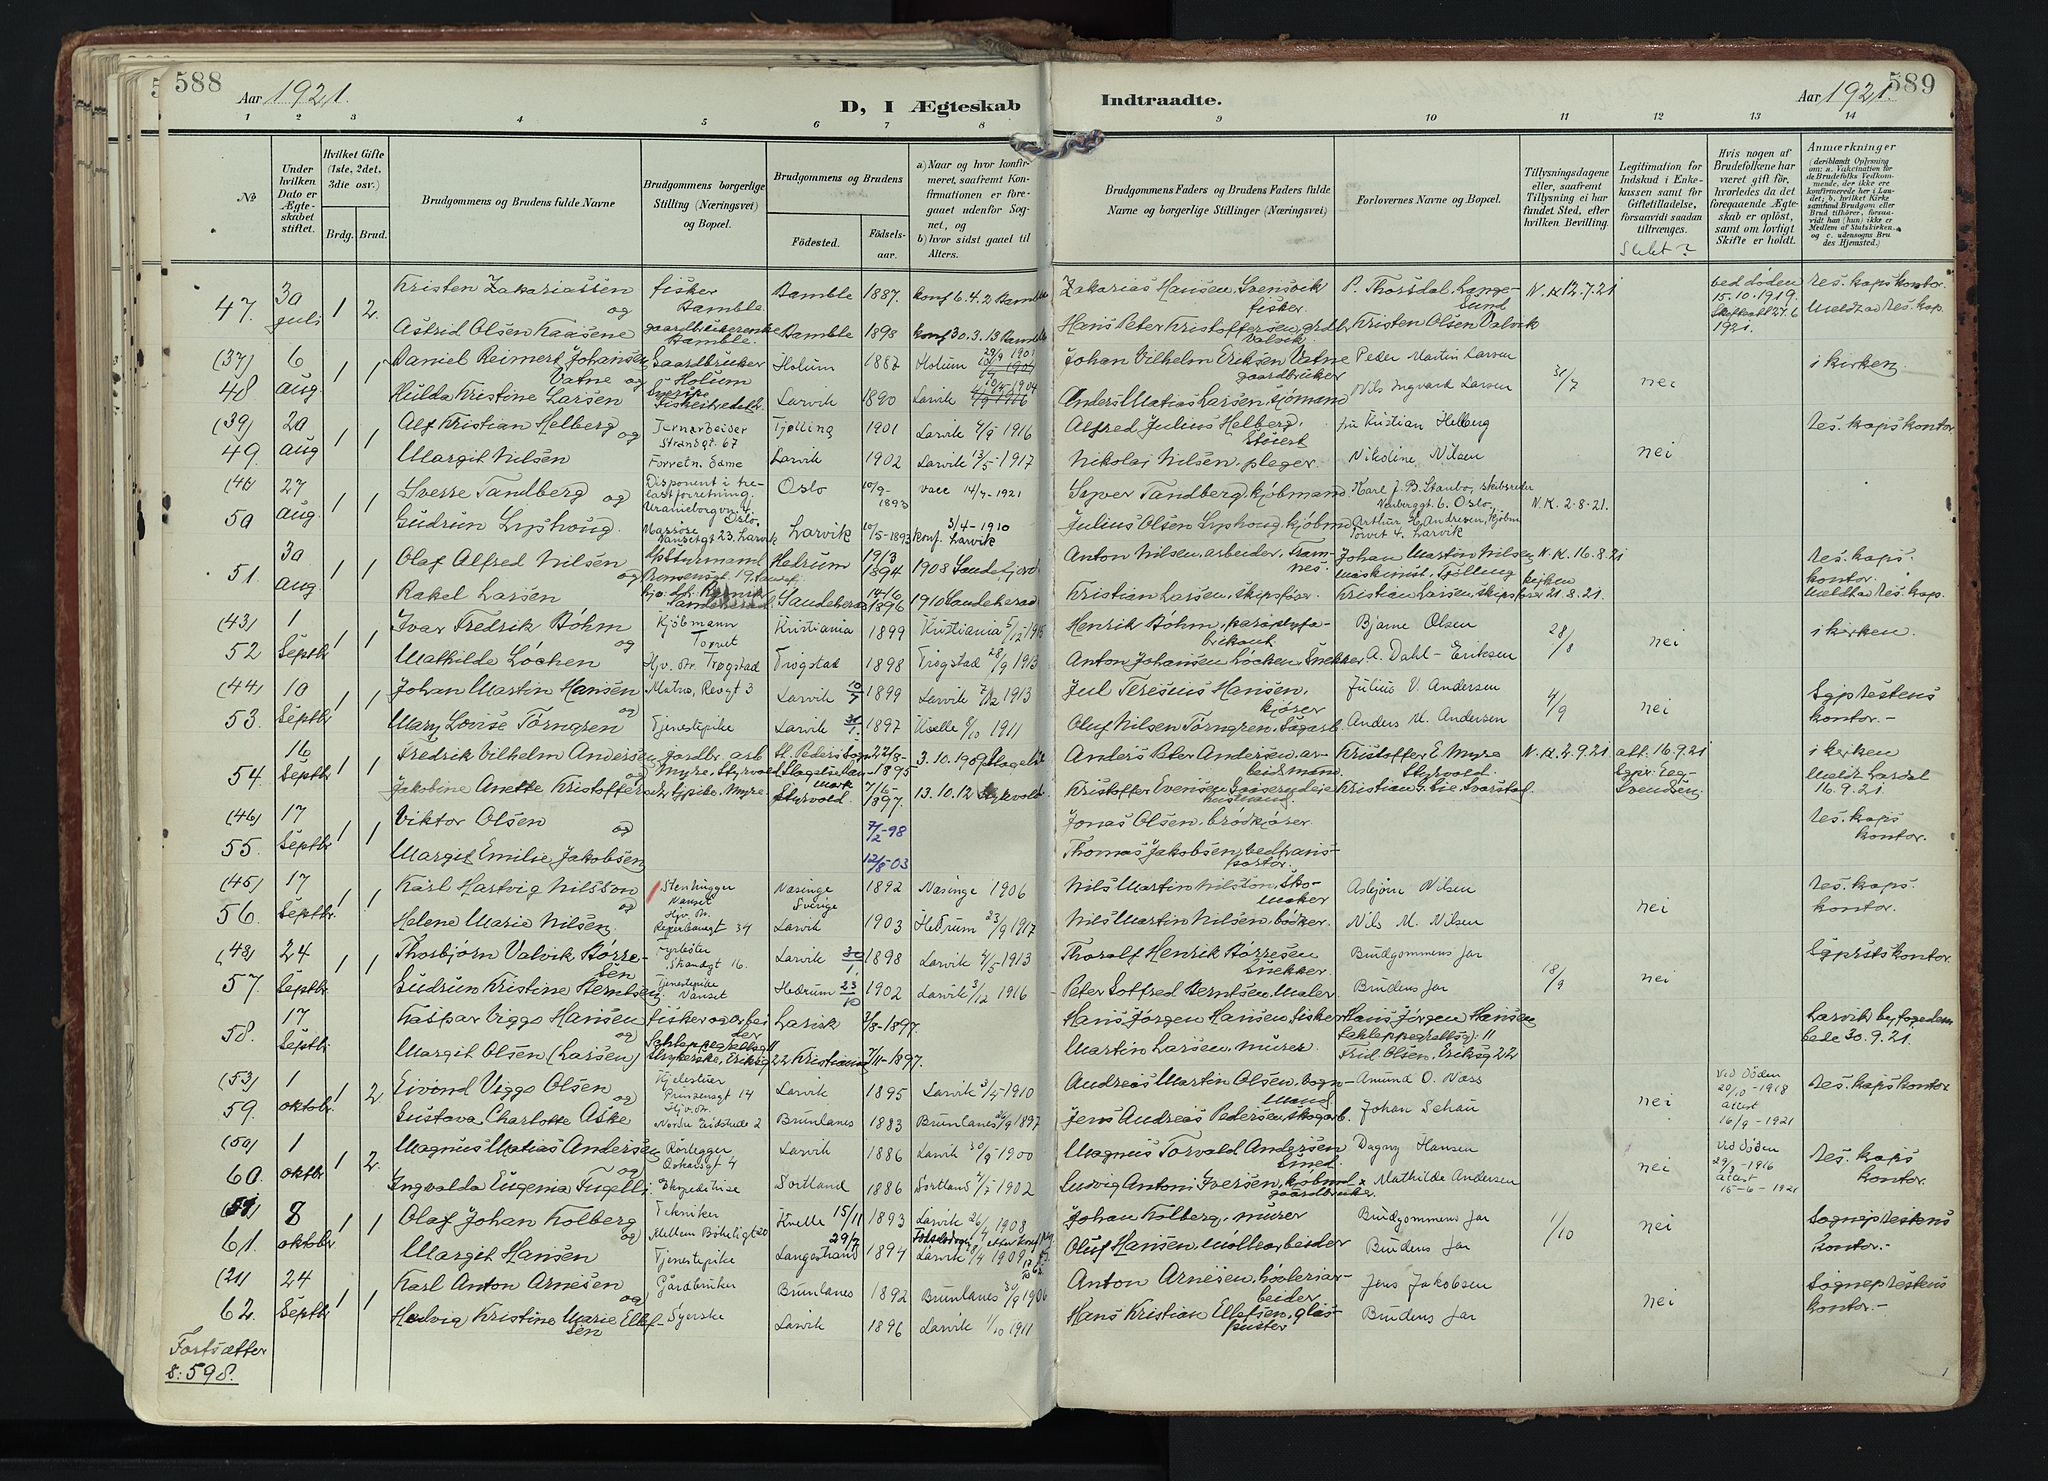 588
Aar 1921.
D, I Ægteskab
Indtraadte.
Aar 1921.
589
1 2 3 4 5 6 7 8 9 10 11 12 13 14
№
Under hvilken Dato er Ægteskabet stiftet.
Hvilket Gifte (1ste, 2det, 3die osv.)
Brdg. Brud.
Brudgommens og Brudens fulde Navne
Brudgommens borgerlige Stilling (Næringsvei) og Bopæl.
Brudgommens og Brudens
Fødested. Fødselsaar.
a) Naar og hvor konfirmeret, saafremt Konfirmationen er foregaaet udenfor Sognet, og
b) hvor sidst gaaet til Alters.
Brudgommens Faders og Brudens Faders fulde Navne og borgerlige Stillinger (Næringsvei)
Forlovernes Navne og Bopæl.
Tillysningsdagene eller, saafremt Tillysning ei har fundet Sted, efter hvilken Bevilling.
Legitimation for Indskud i Enkekassen samt for Giftetilladelse, forsaavidt saadan tiltrænges.
Slekt?
Hvis nogen af Brudefolkene har været gift før, hvorledes da det foregaaende Ægteskab er opløst, samt om lovligt Skifte er holdt.
Anmærkninger
47. 30 juli 1 2 Kristen Zakariassen og fisker Bamble Bamble 1887. konf 6.4.2 Bamble Zakarias Hansen, Svensvik fisker. P. Thorsdal, Langesund N.K. 12.7.21 ved døden 15.10.1919. res. kaps kontor.
Astrid Olsen Kaasene gaardbrukerenke Bamble. Bamble 1898 konf 30.3.13 Bamble Hans Peter Kristoffersen, grdbr Valvik Kristen Olsen Valvik 1921. Meldt av res. kap.
(37) 48 6 aug. 1 1 Daniel Reimert Johansen Vatne og Gaardbruker Holum Holum 1887 Holum Johan Vilhelm Eriksen Vatne gaardbruker Peder Martin Larsen 31/7 nei i kirken
Hulda Kristine Larsen Larvik 1890 Larvik Anders Matias Larsen, sjømand Nils Ingvard Larsen
(39) 49. 20 aug 1 1 Alf Kristian Helberg og Jernarbeider Strandgt. 67 Tjølling 1901 Larvik 1916 Alfred Julius Helberg, Stuert fru Kristian Helberg nei res. kaps kontor
Margit Nilsen Forretn. Dame Larvik 1902 Larvik 13/5-1917 Nikolai Nilsen, pleger. Nikoline Nilsen
50 27 aug. 1 1 Sverre Tandberg og Disponent i trelastforretning. Uranieborgvn. 4 Oslo. Oslo 10/9-1893 vacc 14/7-1921 Syver Tandberg, kjøbmand Karl J. B. Staubo, skibsreder Oslo. N.K. 2-8-21.
Gudrun Lyshoug. Massøse Nansetgt 23, Larvik Larvik 10/5-1893 konf. 3/4-1910 Larvik Julius Olsen Lyshoug, kjøbmd Arthur E. Andresen, kjøbm Torvet 4. Larvik
51. 30 aug 1 1 Olaf Alfred Nilsen og Hedrum 19/3 1894 1908 Sandefjord Anton Nilsen, arbeider, Framnes. Johan Martin Nilsen maskinist, Tjølling N.K. 16.8.21 kirken 21.8.21. res. kaps. kontor. Meldt av res. kap.
Rakel Larsen Sandeherad 14/6 1896 1910 Sandeherad Kristian Larsen, skipsfører. Kristian Larsen, skipsfører
(43) 52 1 Septbr 1 1 Ivar Fredrik Bøhm og Kjøbmann Torvet Kristiania 1899 Kristiania Henrik Bøhm, paraplyfabrikant Bjarne Olsen 28/8 nei i kirken.
Mathilde Løchen Hjv. Dr. Trøgstad Trøgstad 1898 Trøgstad 28/9 1913 Anton Johansen Løchen, Snekker A. Dahl-Eriksen
(44) 53. 10 Septbr 1 1 Johan Martin Hansen og Matros, Revegt 3 Larvik 10/7 1899 Larvik 1913 Jul Teresius Hansen, kjører Julius V. Andersen 4/9 nei Sgprestens kontor.-
Mary Lovise Törngren Tjenestepike Larvik 1897 Kvelle 1911 Oluf Nilsen Törngren, Sagarb. Anders M. Andersen
54. 16 Septbr 1 1 Fredrik Vilhelm Andersen og jordbr. arb Myre, Styrvold St. Peders sogn Slagelse Danmark 22/8-1895 3.10.1909 Slagelse Anders Peter Andersen, arbeidsmand. Kristoffer E. Myre Styrvold. N.K. 2.9.21 att. 16.9.21 Sgpr. Eeg-Svendsen i kirken Meldt Lardal 16.9.21.
Jakobine Anette Kristoffersen tj.pike, Myre Styrvold 7/6-1897. 13.10.12 Styrvold Kristoffer Evensen husmand. Kristian G. Lie, Svarstad.
(46) 55. 17 Septbr 1 1 Viktor Olsen og 7/2-98 Jonas Olsen, brødkjører. res. kaps kontor.
Margit Emilie Jakobsen 12/8-03 Thomas Jakobsen, vedtransportør.
(45) 56. 17 Septbr. 1 1 Karl Hartvig Nilsson og Stenhugger Nanset Næsinge Sverige 1892 Næsinge 1906 Nils Martin Nilsson, skomaker Asbjørn Nilsen nei res. kaps. kontor.
Helene Marie Nilsen Hjv. Dr. Reperbanegt 34 Larvik 1903 Hedrum 23/9 1917 Nils Martin Nilsen, bødker. Nils M. Nilsen
(48) 57. 24 Septbr 1 1 Thorbjørn Valvik Børresen Fyrbøter Strandgt 16. Larvik 30/1 1898 Larvik 4/5 1913 Thoralf Henrik Børresen Snekker. Brudgommens far 18/9 nei Sgprstskontor.
Gudrun Kristine Berntsen. Tjenestepike Nanset Hedrum 23/10 1902 Larvik 3/12 1916 Peter Gotfred Berntsen, Maler Brudens far
58. 17 Septbr Kaspar Viggo Hansen og fisker og arbeider Larvik 3/8-1897. Hans Jørgen Hansen, fisker Hans Jørgen Hansen 11 Larvik byfogedembede 30.9.21.
Margit Olsen (Larsen) Strykerske, Eriksg 22 Kristiania 7/11-1897. Martin Larsen, murer Frid. Olsen, Eriksg 22
(53) 59. 1 oktobr. 1 2. Eivind Viggo Olsen og Hjelestuer Prinsensgt 14 Larvik 1895 Larvik 1910 Andreas Martin Olsen, vognmand. Amund O. Næss nei Ved Døden 20/10-1918 attest 16/9-1921 res. kaps kontor
Gustava Charlotte Aske Hjv. Dr. Nordre Eidstrede 2 Brunlanes 1883 Brunlanes 1897 Jens Andreas Pedersen, skogarb. Johan Schau
(50) 60. 1 oktbr 1 2. Magnus Matias Andersen og Rørlegger Oskarsgt 4 Larvik 1886 Larvik 30/9-1900 Magnus Torvald Andersen Smed. Dagny Hansen nei Ved Døden 1916 attest 15-6-1921 res. kaps kontor.
Ingvalda Eugenia Fugelli Ekspeditrise Sortland 1886 Sortland 1902 Ludvig Antoni Iversen, kjøbmd & gaardbruker. Mathilde Andersen
(51) 61. 8 oktobr 1 1 Olaf Johan Kolberg og Tekniker Mellem Bøkeligt 20 Kvelle 15/11 1893 Larvik 26/4 1908 Johan Kolberg, murer Brudgommens far 1/10 nei Sogneprestens kontor.-
Margit Hansen Tjenestepike Langestrand 29/7 1894 Larvik 1909 Oluf Hansen, møllearbeider Brudens far
(21) 62. 24 Septbr 1 1 Karl Anton Arnesen og Gårdbruker Brunlanes 1892 Brunlanes 30/9 1906 Anton Arnesen, høvleriarbeider Jens Jakobsen nei Sogneprestens kontor.-
Hedvig Kristine Marie Ellefsen Syerske Larvik 1896 Larvik 1/10 1911 Hans Kristian Ellefsen, glaspuster Brudens far
Fortsætter
s: 598.